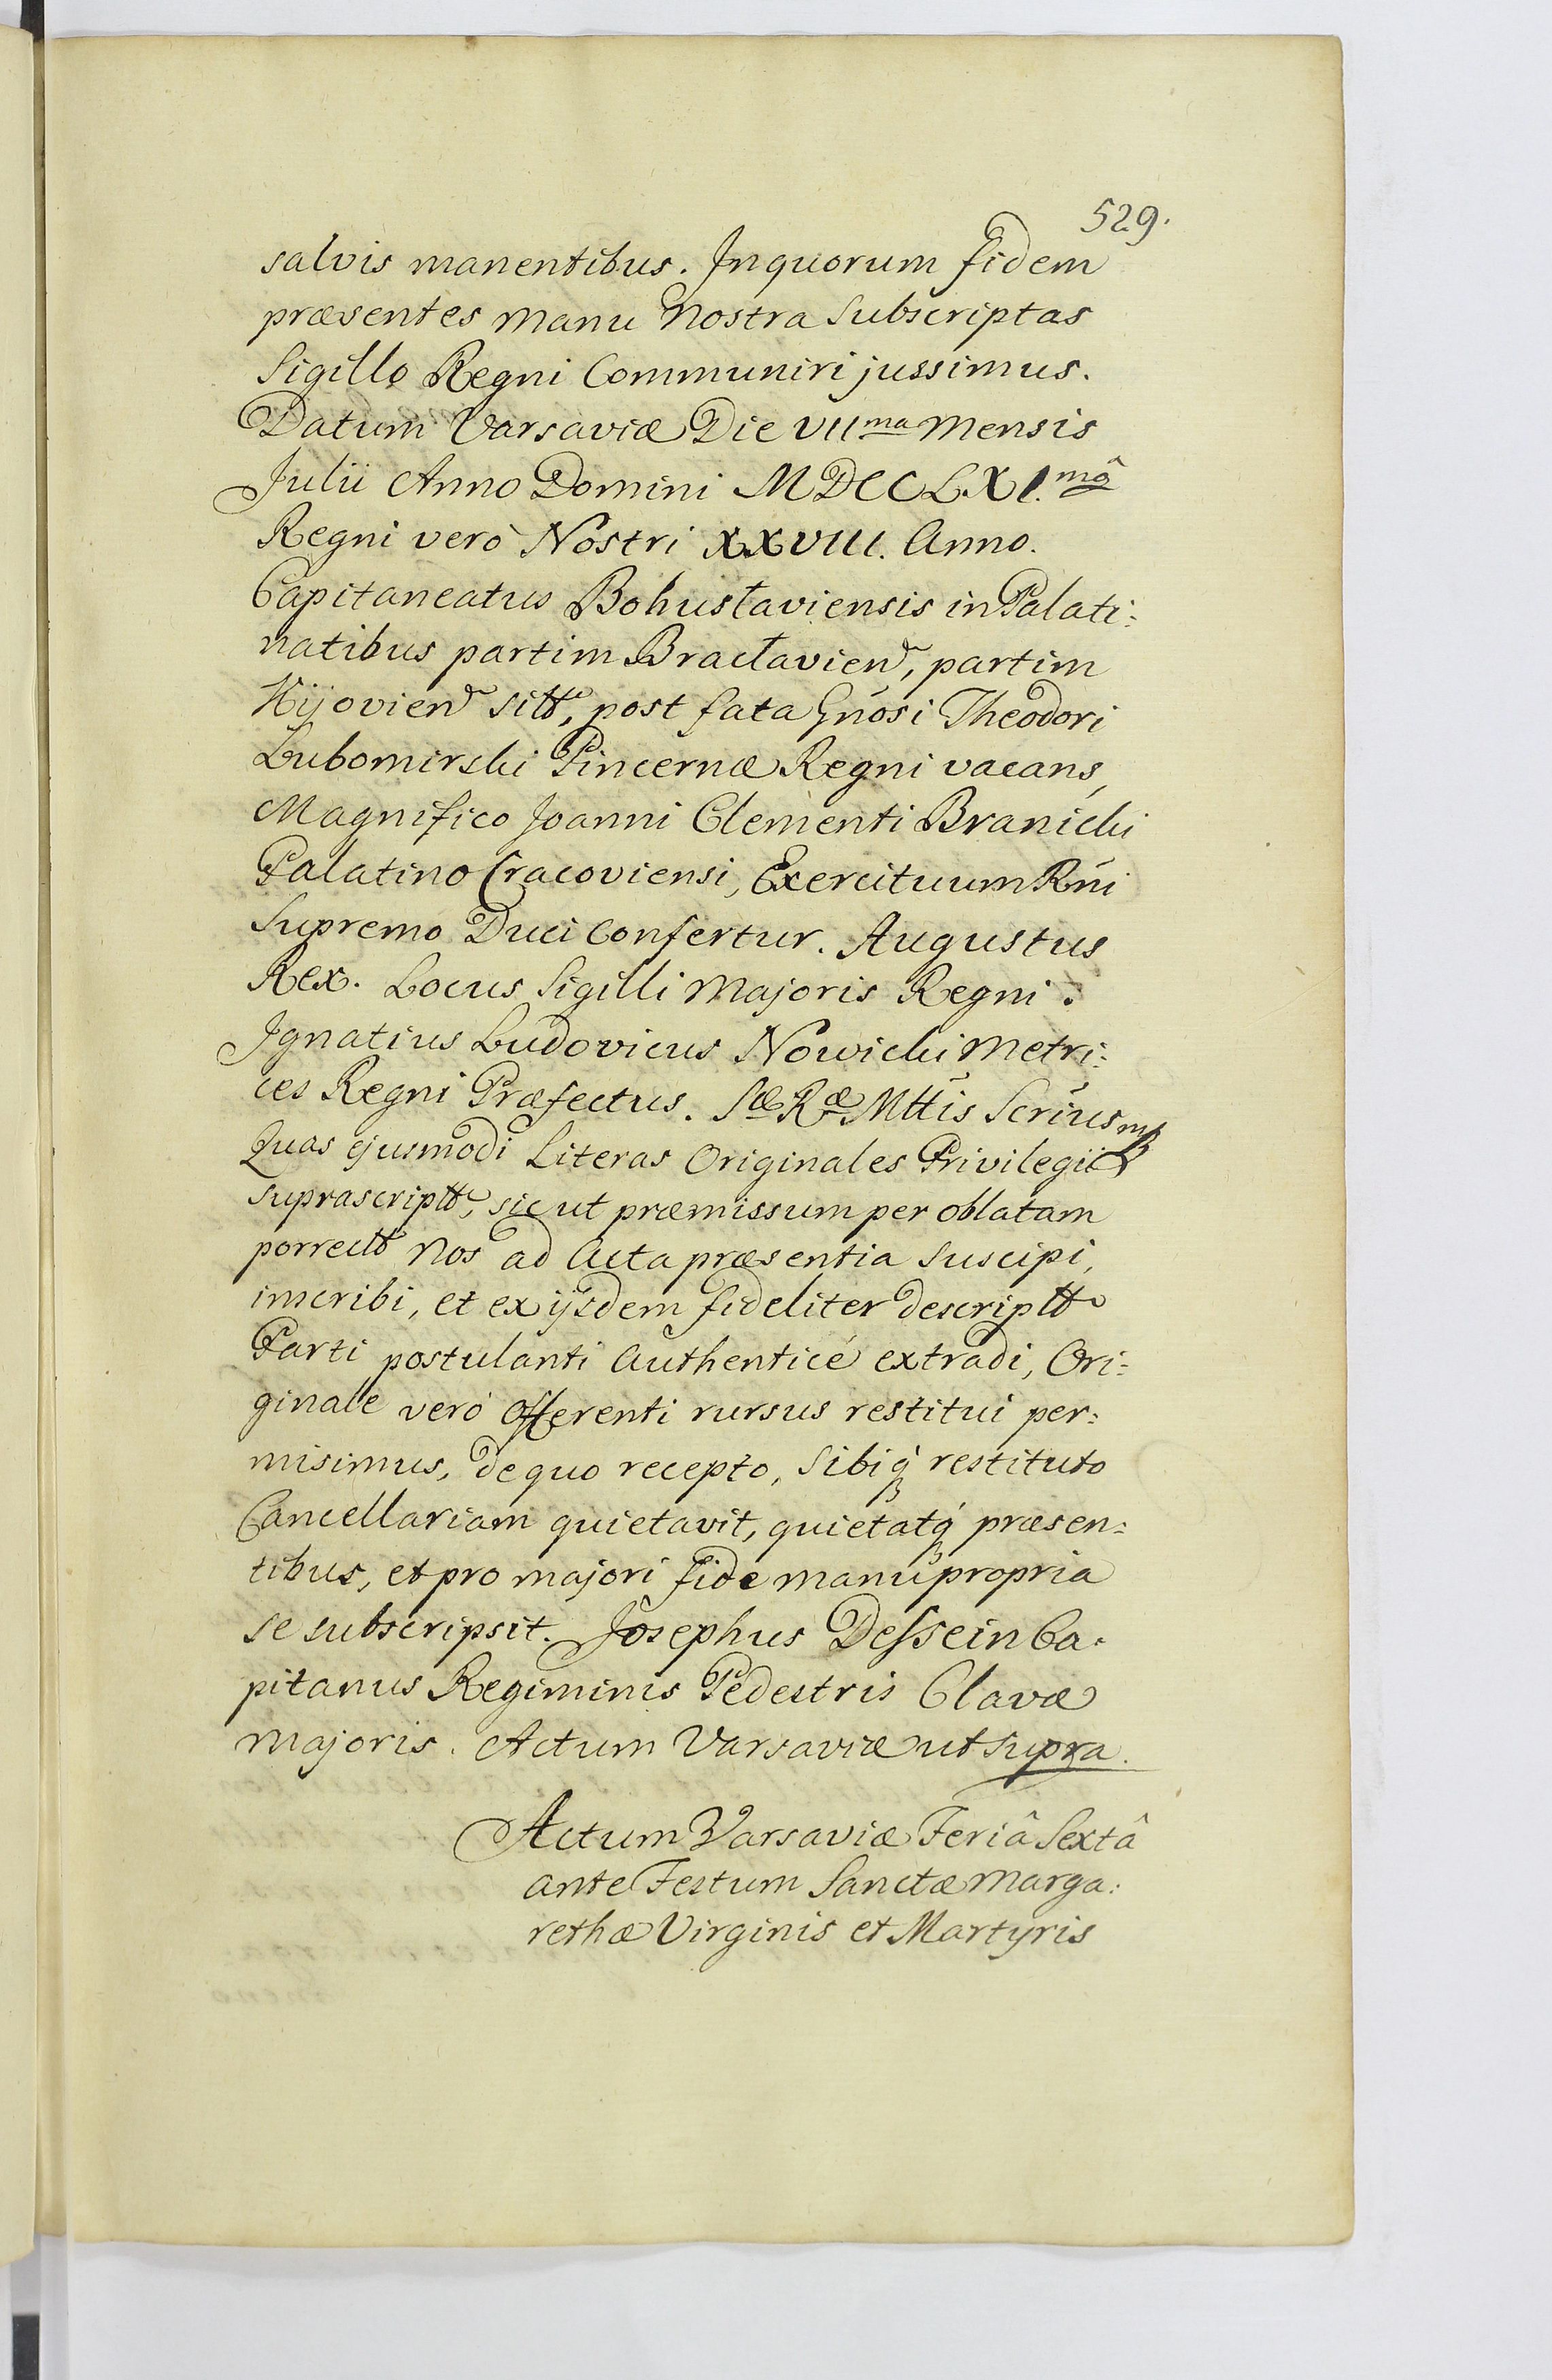 529.
salvis manentibus. In quorum fidem
præsentes manu Nostra Subscriptas
Sigillo Regni Communiri jussimus.
Datum Varsaviæ Die VII ma Mensis
Julii Anno Domini MDCCLXI. mô
Regni verò Nostri XXVIII. Anno.
Capitaneatus Bohuslaviensis in Palati:
natibus partim Braclavien, partim
Kijovien sitt, post fata Gnosi Theodori
Lubomirski Pincernæ Regni vacans,
Magnifico Joanni Clementi Branicki
Palatino Cracoviensi, Exercituum Rni
Supremo Duci Confertur. Augustus
Rex. Locus Sigilli Majoris Regni.
Ignatius Ludovicus Nowicki Metri:
ces Regni Præfectus. Sæ Ræ Mttis Scrius mp
Quas ejusmodi Literas Originales Privilegii
suprascriptt, sic ut præmissum per oblatam
porrectt Nos ad Acta præsentia Suscipi,
inscribi, et ex ijsdem fideliter descriptt
Parti postulanti Authenticé extradi, Ori:
ginale veró Offerenti rursus restitui per:
misimus, de quo recepto, Sibiq́ restituto
Cancellariam quietavit, quietatq́ præsen:
tibus, et pro majori fide manu propria
se subscripsit. Josephus Dessein Ca:
pitanus Regiminis Pedestris Clavæ
Majoris. Actum Varsaviæ ut supra.
Actum Varsaviæ Feriâ Sextâ
ante Festum Sanctæ Marga:
rethæ Virginis et Martyris